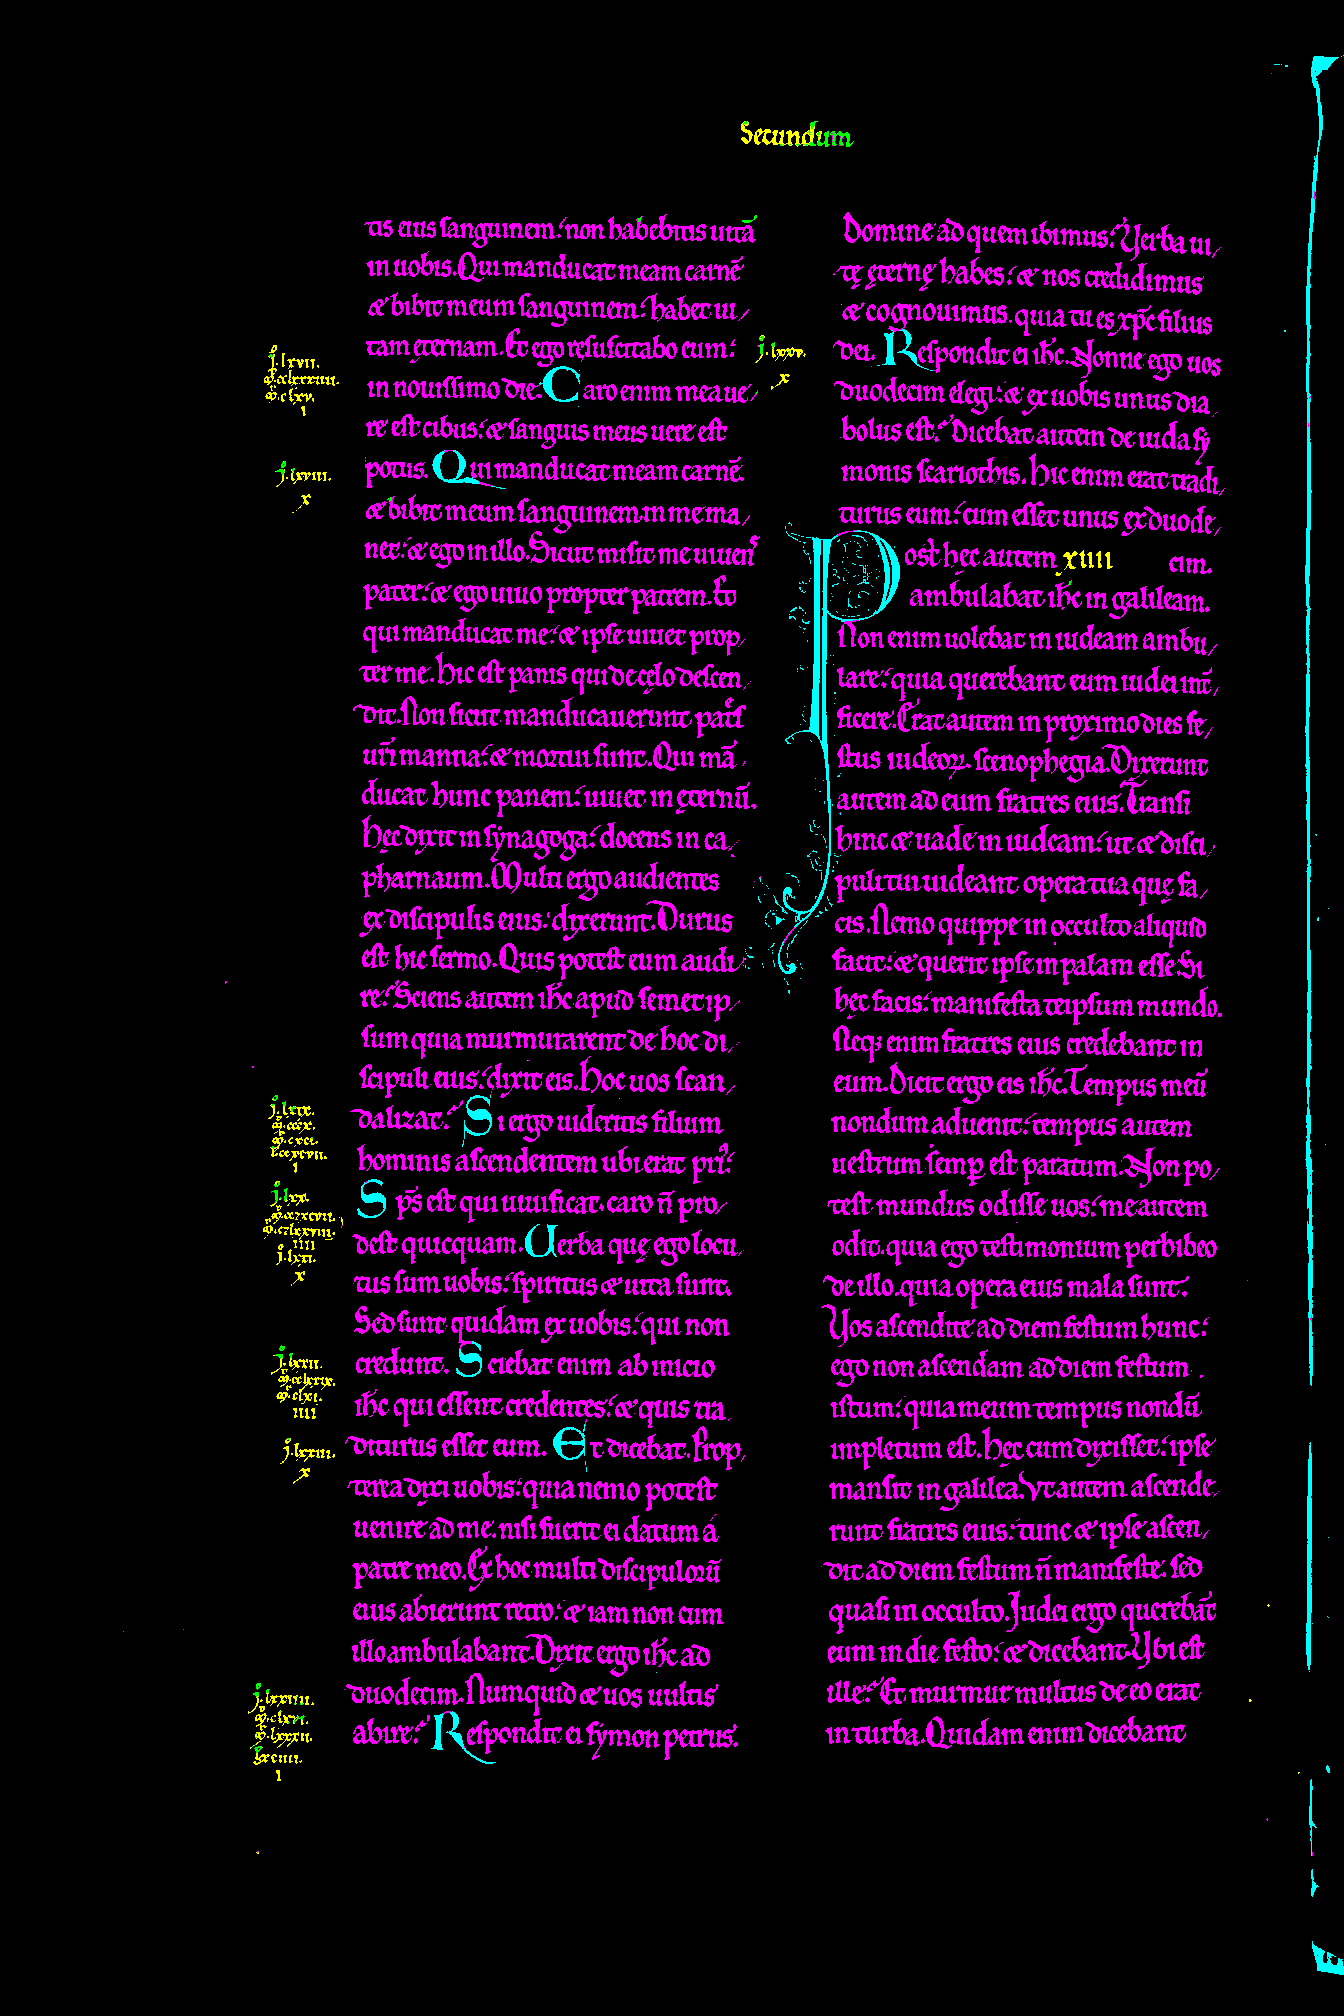 Secundum
tis eius sanguinem: non habebitis uitā
in uobis. Qui manducat meam carnē
& bibit meum sanguinem: habet ui/
tam ęternam. Et ego resuscitabo eum:
in nouissimo die. Caro enim mea ue/
re est cibus: & sanguis meus uere est
potus. Qui manducat meam carnē.
& bibit meum sanguinem. in me ma/
net: & ego in illo. Sicut misit me uiuens
pater: & ego uiuo propter patrem. Et
qui manducat me: & ipse uiuet prop/
ter me. Hic est panis qui de cęlo descen/
dit. Non sicut manducauerunt patͦs
ur̄i manna: & mortui sunt. Qui mā/
ducat hunc panem: uiuet in ęternū.
Hęc dixit in synagoga: docens in ca/
pharnaum. Multi ergo audientes
ex discipulis eius: dixerunt. Durus
est hic sermo. Quis potest eum audi/
re: Sciens autem ihc̄ apud semetip/
sum quia murmurarent de hoc di/
scipuli eius: dixit eis. Hoc uos scan/
dalizat: Si ergo uideritis filium
hominis ascendentem ubi erat pri͛:
Sps̄ est qui uiuificat. caro n̄ pro/
dest quicquam. Uerba quę ego locu/
tus sum uobis: spiritus & uita sunt.
Sed sunt quidam ex uobis: qui non
credunt. Sciebat enim ab inicio
ihc̄ qui essent credentes: & quis tra/
diturus esset eum. Et dicebat. Prop/
terea dixi uobis: quia nemo potest
uenire ad me. nisi fuerit ei datum á
patre meo. Ex hoc multi discipulorū
eius abierunt retro: & iam non cum
illo ambulabant. Dixit ergo ihc̄ ad
duodecim. Numquid & uos uultis
abire: Respondit ei symon petrus.
j. lxvii.
j. lxviii.
x
j. lxix.
j. lxx.
j. lxxi.
x
j. lxxii.
j. lxxiii.
x
j. lxxiiii.
Domine ad quem ibimus: Verba ui/
tę ęternę habes: & nos credidimus
& cognouimus. quia tu es xpc̄ filius
dei. Respondit ei ihc̄. Nonne ego uos
duodecim elegi: & ex uobis unus dia/
bolus est: Dicebat autem de iuda sy/
monis scariothis. Hic enim erat tradi/
turus eum: cum esset unus ex duode/
Post hęc autem xiiii cim.
ambulabat ihc̄ in galileam.
Non enim uolebat in iudeam ambu/
lare: quia querebant eum iudei int̄/
ficere. Erat autem in proximo dies fe/
stus iudeoꝝ. scenophegia. Dixerunt
autem ad eum fratres eius. Transi
hinc & uade in iudeam: ut & disci/
puli tui uideant opera tua quę fa/
cis. Nemo quippe in occulto aliquid
facit: & querit ipse in palam esse. Si
hęc facis: manifesta teipsum mundo.
Neq; enim fratres eius credebant in
eum. Dicit ergo eis ihc̄. Tempus meū
nondum aduenit: tempus autem
uestrum semꝑ est paratum. Non po/
test mundus odisse uos: me autem
odit. quia ego testimonium perhibeo
de illo. quia opera eius mala sunt.
Vos ascendite ad diem festum hunc:
ego non ascendam ad diem festum
istum: quia meum tempus nondū
impletum est. Hęc cum dixisset: ipse
mansit in galilea. Vt autem ascende/
runt fratres eius: tunc & ipse ascen/
dit ad diem festum n̄ manifeste. sed
quasi in occulto. Judei ergo querebāt
eum in die festo: & dicebant. Vbi est
ille: Et murmur multus de eo erat
in turba. Quidam enim dicebant
j. lxxv.
x